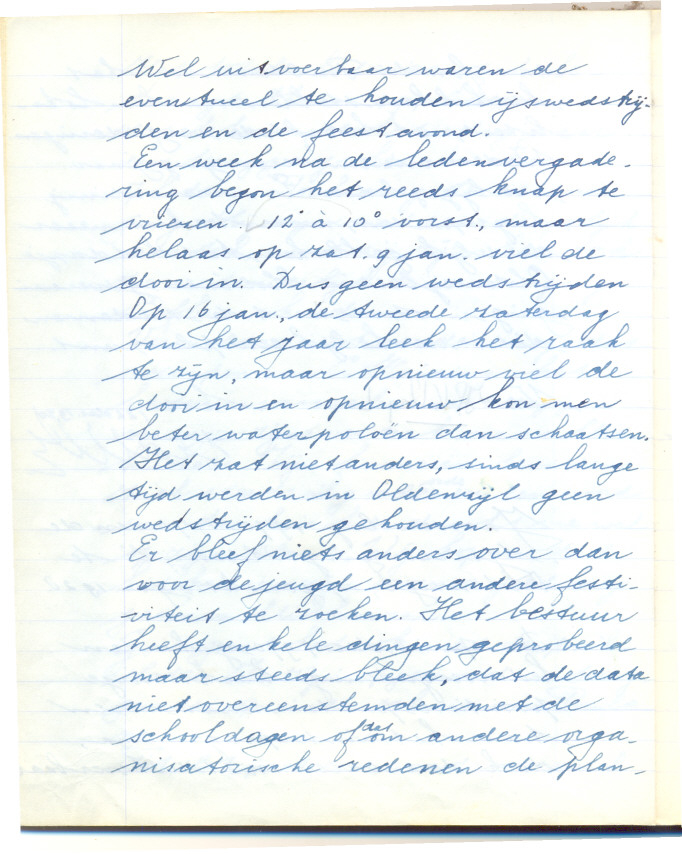 Wel uitvoerbaar waren de
eventueel te houden ijswedstrij-
den en de feestavond.
Een week na de ledenvergade-
ring begon het reeds knap te
vriezen. 12° à 10° vorst., maar
helaas op zat. 9 jan. viel de
dooi in. Dus geen wedstrijden
Op 16 jan., de tweede zaterdag
van het jaar leek het raak
te zijn, maar opnieuw viel de
dooi in en opnieuw kon men
beter waterpoloën dan schaatsen.
Het zat niet anders, sinds lange
tijd werden in Oldenzijl geen
wedstrijden gehouden.
Er bleef niets anders over dan
voor de jeugd een andere festi-
viteit te zoeken. Het bestuur
heeft enkele dingen geprobeerd
maar steeds bleek, dat de data
niet overeenstemden met de
schooldagen of dat om andere orga-
nisatorische redenen de plan-